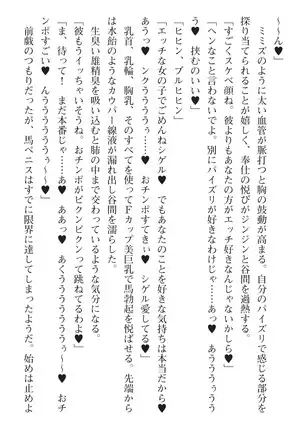 ～～ん♥」
ミミズのように太い血管が脈打つと胸の鼓動が高まる。自分のパイズリで感じる部分を
探り当てられることが嬉しく、奉仕の悦びがジンジンと谷間を過熱する。
「すごくスケベ顔ね。彼よりもあなたの方がエッチ好きなんじゃないかしら♥」
「ヘンなこと言わないでよ。別にパイズリが好きなわけじゃ……あっ♥　あうううぅうう
♥　挟むのいい♥」
「ヒヒン、ブルヒヒン」
「エッチな女の子でごめんねシゲル♥　でもあなたのことを好きな気持ちは本当だから♥
あうっ♥　ンクううううぅ～～♥　おチンポすてきい♥　シゲル愛してる♥」
乳首、乳輪、胸乳、そのすべてを使ってＦカップ美巨乳で馬勃起を悦ばせる。先端から
は水飴のようなカウパー線液が漏れ出し谷間を濡らした。
生臭い雄精臭を吸い込むと肺の中まで交わっているような気分になる。
「彼もうイッちゃいそうね。おチンポがビクンビクンって跳ねてるわよ♥」
「ま、待って！　まだ本番じゃ……♥　ああっ♥　あくうううううぅぅ～♥　おチ
ンポすごい♥　んううううううう♥」
前戯のつもりだったが、馬ペニスはすでに限界に達してしまったようだ。始めは止めよ